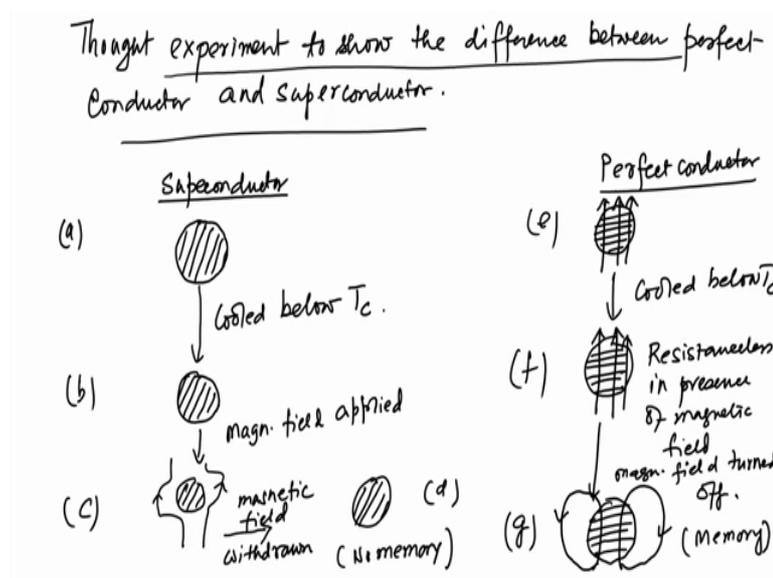 Thought experiment to show the difference between perfect-
Conductor and superconductor.
Supeconductor
(a)
Cooled below Tc.
(b)
magn. field applied
(c)
magnetic
field
withdrawn
(d)
(No memory)
Perfect conductor
(e)
Cooled below Tc
(f)
Resistanceless
in presence
of magnetic
field
magn. field turned
off.
(g)
(Memory)